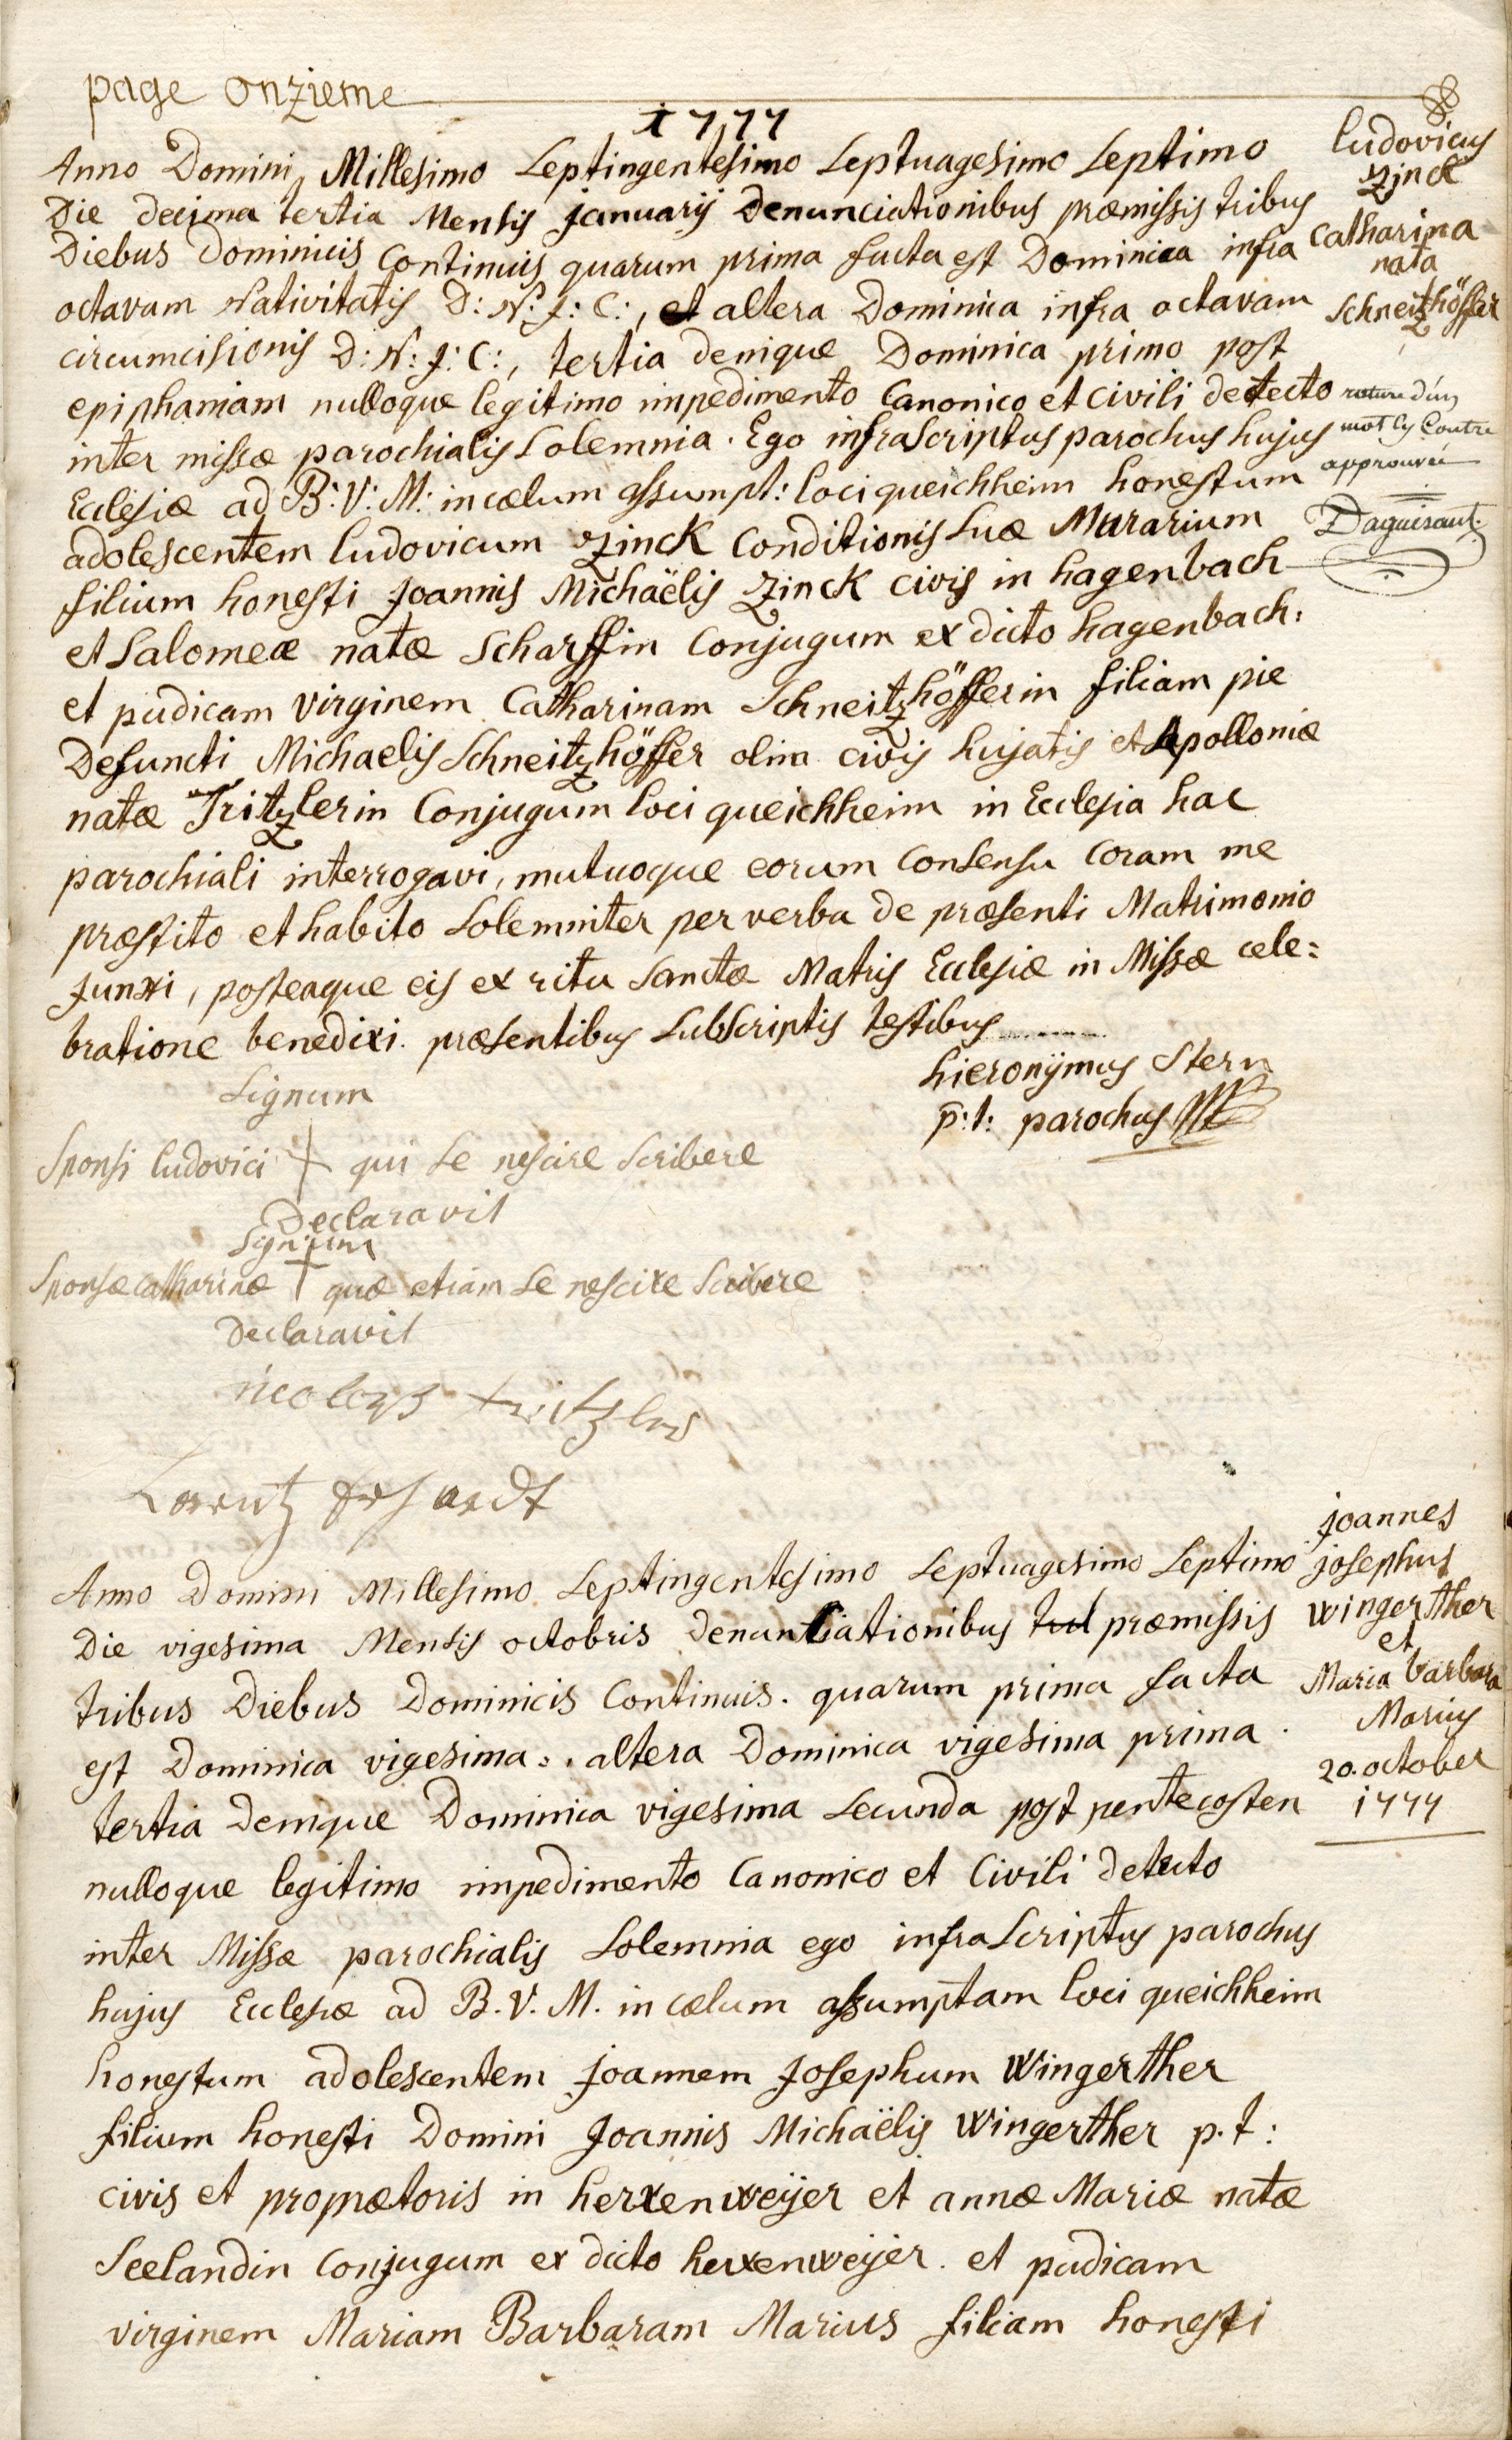 page onzieme
1777
Anno Domini Millesimo Septingentesimo Septuagesimo Septimo
Die decima tertia Mensis januarij Denunciationibus præmissis tribus
Diebus Dominicis Continuis quarum prima facta est Dominica infra
octavam Nativitatis D: N: J: C:, et altera Dominica infra octavam
circumcisionis D: N: J: C:, tertia denique Dominica primo post
epiphaniam nulloque legitimo impedimento Canonico et Civili detecto
inter missæ parochialis Solemnia. Ego infraScriptus parochus hujus
Ecclesiæ ad B: V: M: in cælum assumpt: loci queichheim honestum
adolescentem ludovicum Zinck Conditionis Suæ Murarium
filium honesti Joannis Michaëlis Zinck civis in hagenbach
et Salomeæ natæ Scharffin Conjugum ex dicto hagenbach:
et pudicam virginem Catharinam Schneitzhöfferin filiam pie
Defuncti Michaelis Schneitzhöffer olim civis hujatis et Apolloniæ
natæ Tritzlerin Conjugum loci queichheim in Ecclesia hac
parochiali interrogavi, mutuoque eorum Consensu Coram me
præstito et habito Solemniter per verba de præsenti Matrimonio
Junxi, posteaque eis ex ritu Sanctæ Matris Ecclesiæ in Missæ cele=
bratione benedixi. præsentibus SubScriptis testibus
hieronÿmus Stern
p:t: parochus
Signum
Sponsi ludovici + qui Se nescire Scribere
Declaravit
Signum
Sponsæ catharinæ + quæ etiam Se nescire Scribere
Declaravit
nicolaus tritzler
Lorentz
ludovicus
Zinck
Catharina
nata
Schneitzhöffer
rature d'un
mot cy Contre
approuvée
Anno Domini Millesimo Septingentesimo Septuagesimo Septimo
Die vigesima Mensis octobris Denuntiationibus præmissis
tribus Diebus Dominicis Continuis. quarum prima facta
est Dominica vigesima:. altera Dominica vigesima prima.
tertia Demque Dominica vigesima Secunda post pentecosten
nulloque legitimo impedimento Canonico et Civili detecto
inter Missæ parochialis Solemnia ego infraScriptus parochus
hujus Ecclesiæ ad B. V. M. in cælum assumptam loci queichheim
honestum adolescentem joannem Josephum Wingerther
filium honesti Domini Joannis Michaëlis Wingerther p.t:
civis et proprætoris in herxenweijer et annæ Mariæ natæ
Seelandin Conjugum ex dicto herxenweijer. et pudicam
virginem Mariam Barbaram Marius filiam honesti
joannes
josephus
Wingerther
et
Maria barbara
Marius
20. october
1777